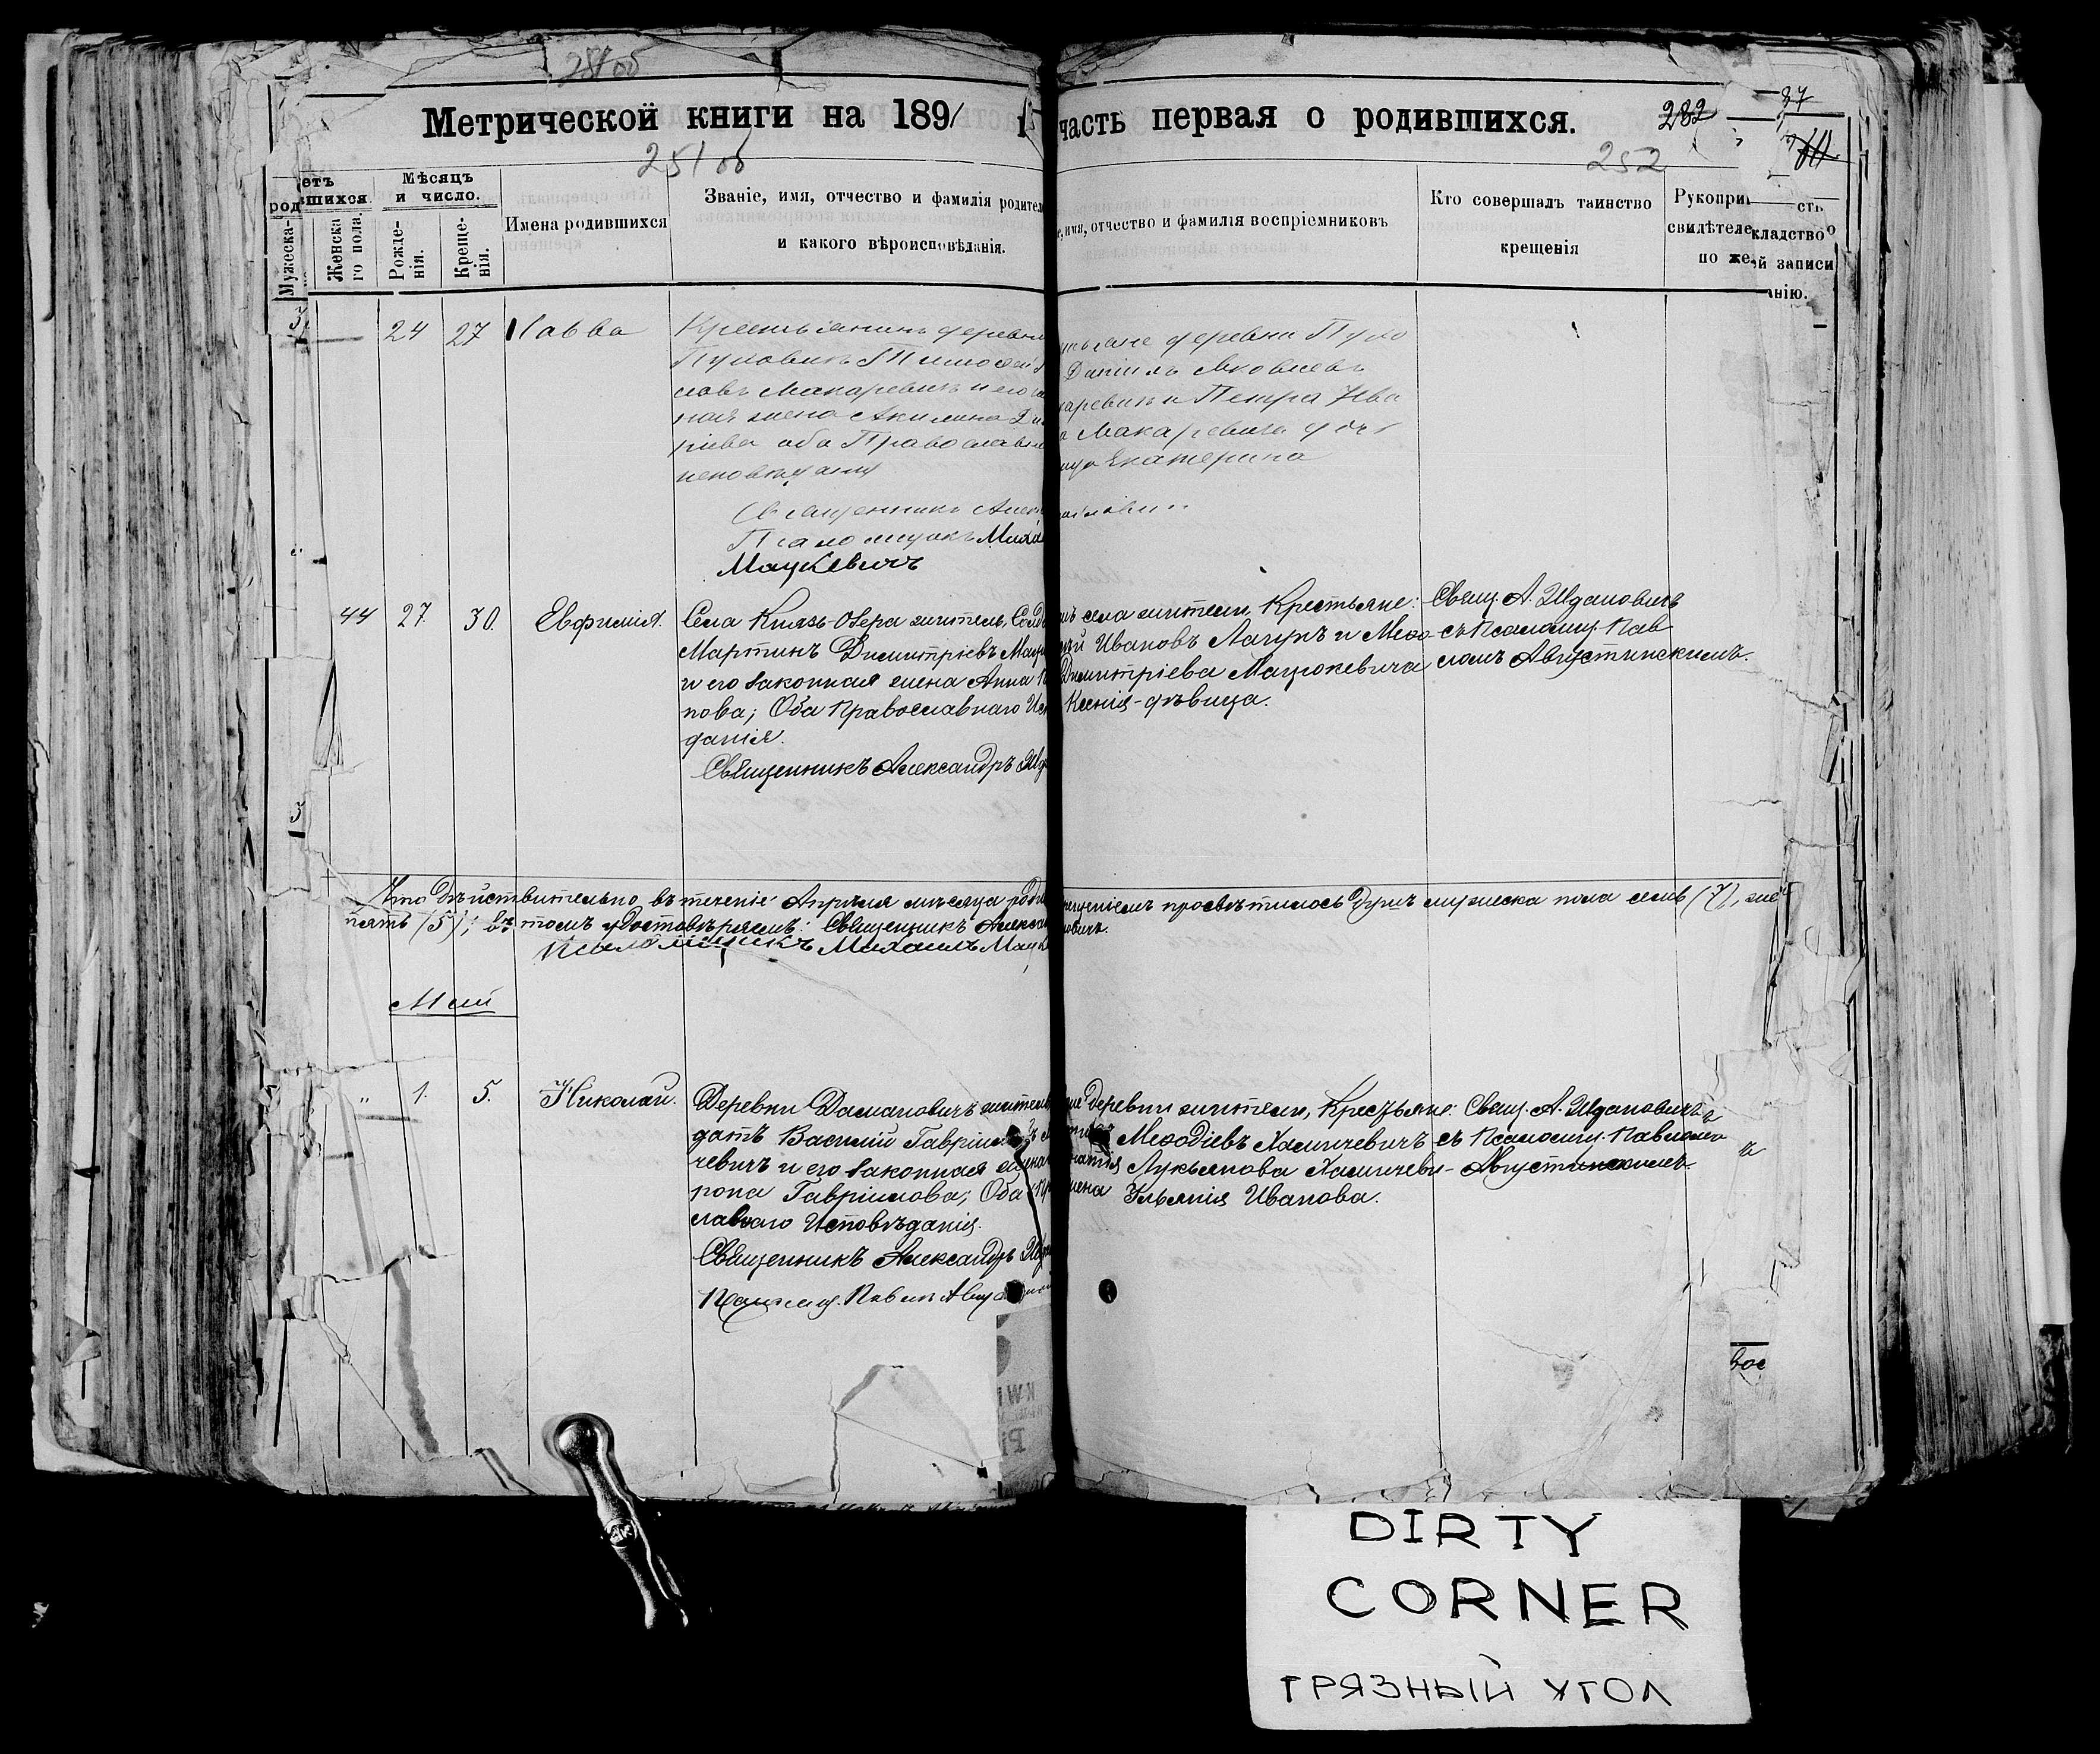 25 об
Метрической книги на 1891
часть первая о родившихся.
282
37
60
251 об
252
етъ
родшихся
Мужеска-
Женска
го пола.
Мѣсяцъ
и число.
Рожде-
нія.
Креще-
нія.
Имена родившихся
Званіе, имя, отчество и фамилія родител
и какого вѣроисповѣданія.
имя, отчество и фамилія воспріемниковъ
Кто совершалъ таинство
крещенія
Рукопри
свидѣтеле
по же
сть
кладство
й записи
анію.
24 27 Савва
Крестьянинъ деревни
Пуховичъ Тимофей
Макаревичъ и его
ная жена Акилина
ріева оба Православн
исповѣданія
Священникъ
Псаломщикъ Миха
Мацкевичъ
деревни Пухо
Даніилъ Яковлевъ
каревичъ и Петра Ива
Макаревича доч
Екатерина
44 27. 30. Евфимія.
Села Князь-Озера житель, Солд
Мартинъ Димитріевъ Мацю
и его законная жена Анна
пова; Оба Православнаго Ис
данія.
Священникъ Александръ
села жители, Крестьяне:
Ивановъ Лагунъ и Меѳо-
Димитріева Мацюкевича
Ксенія-дѣвица.
Свящ. А. Ждановичъ
съ Псаломщ. Пав
ломъ Августинскимъ.
Что дѣйствительно въ теченіе Апрѣля мѣсяца роди
щеніемъ просвѣтилось душъ мужеска пола семь (7), же
пять (5); въ томъ удостовѣряемъ: Священникъ Алекса
новичъ.
Псаломщикъ Михаилъ Мацк
Май
„ 1. 5. Николай.
Деревни Дамановичъ житель
датъ Василій Гавріил
чевичъ и его законная жена
рона Гавріилова; Оба Пр
славнаго Исповѣданія.
Священникъ Александръ
Псаломщ. Павелъ Авгу
деревни жители, Крестьяне:
Меѳодіевъ Хамичевичъ
Лукьянова Хамичеви-
жена Ульянія Иванова.
Свящ. А. Ждановичъ
съ Псаломщ. Павломъ
Августинскимъ.
вое
DIRTY
CORNER
ГРЯЗНЫЙ УГОЛ